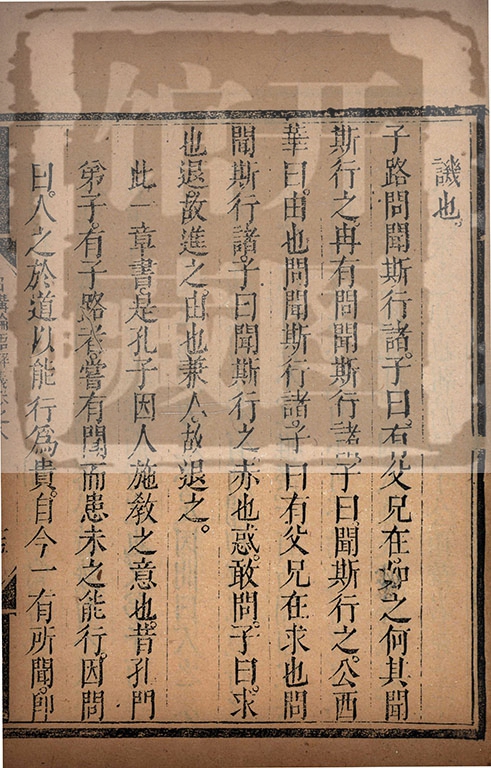 譏也。
子路問聞斯行諸。子曰。有父兄在。如之何其聞
斯行之。冉有問聞斯行諸。子曰。聞斯行之。公西
華曰。由也問聞斯行諸。子曰有父兄在求也問
聞斯行諸。子曰聞斯行之赤也惑。敢問。子曰。求
也退。故進之。由也兼人。故退之。
此一章書是孔子因人施教之意也。昔孔門
弟子。有子路者。嘗有聞而患未之能行。因問
曰。人之於道以能行爲貴。自今一有所聞。卽
日講論語解義卷之八